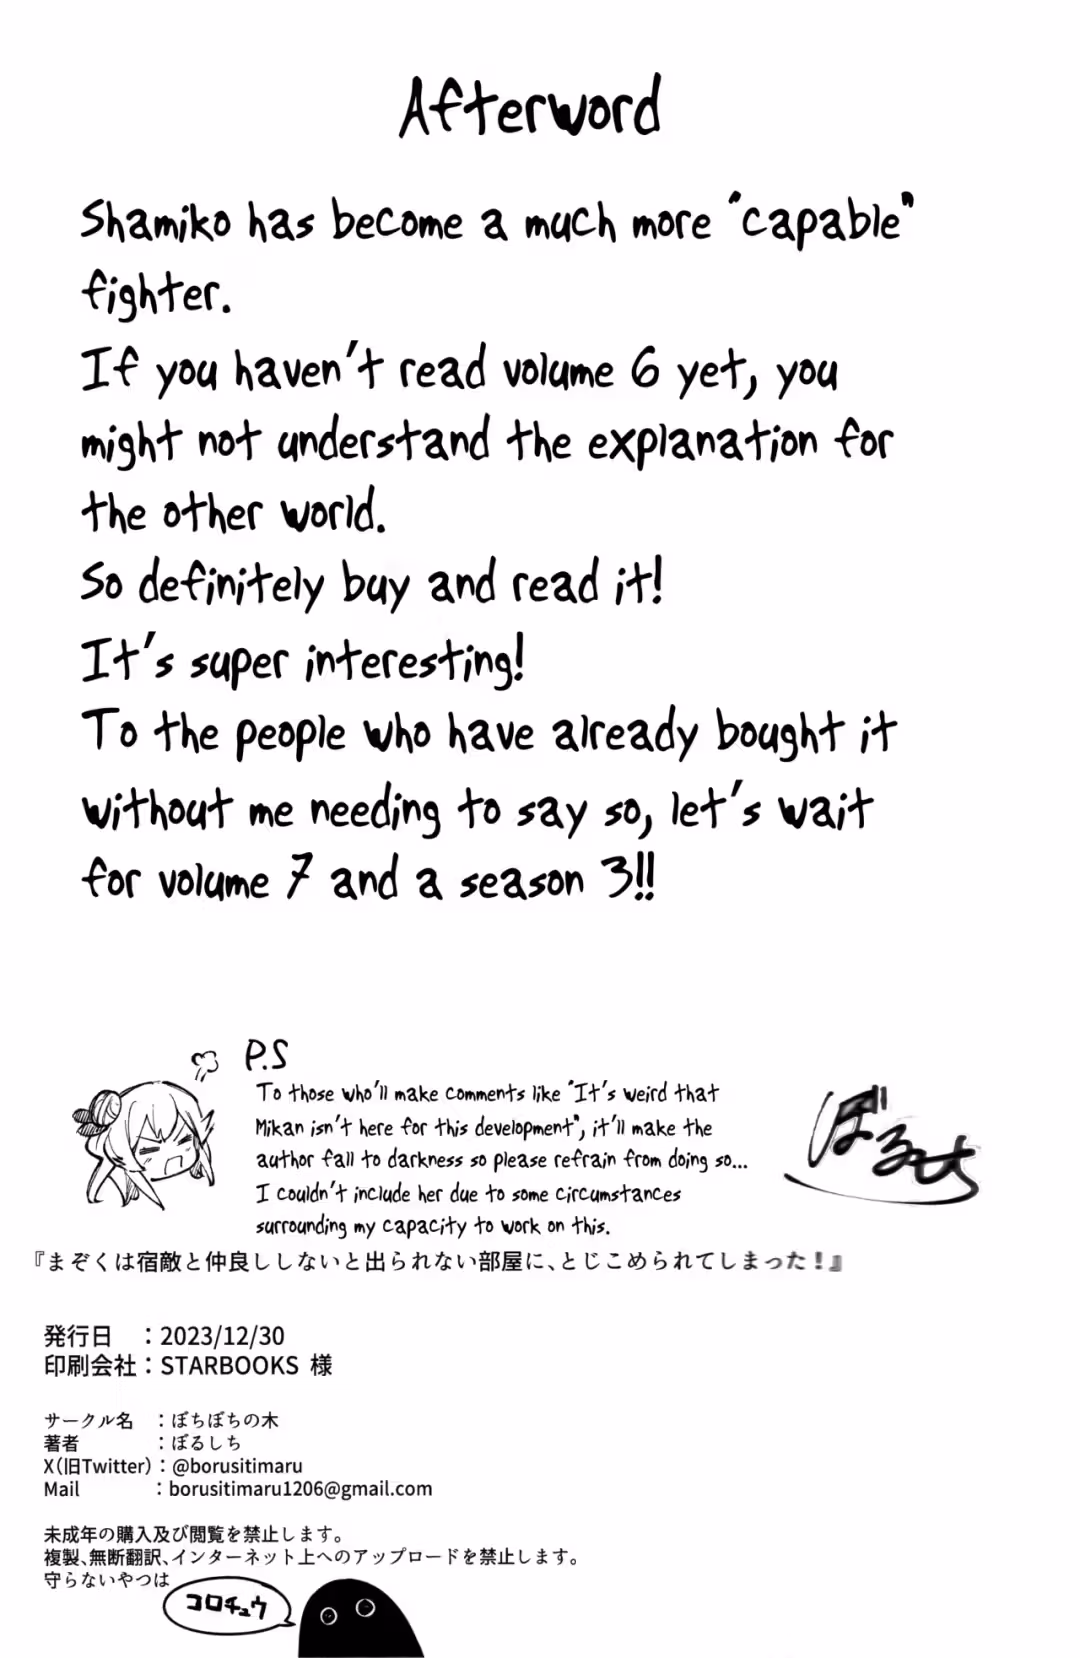 Afterword
Shamiko has become a much more "capable"
fighter.
If you haven't read volume 6 yet, you
might not understand the explanation for
the other world.
So definitely buy and read it!
It's super interesting!
To the people who have already bought it
without me needing to say so, let's wait
for volume 7 and a season 3!!
P.S
To those who'll make comments like "It's weird that
Mikan isn't here for this development", it'll make the
author fall to darkness so please refrain from doing so...
I couldn't include her due to some circumstances
surrounding my capacity to work on this.
ぼるしち
『まぞくは宿敵と仲良ししないと出られない部屋に、とじこめられてしまった！』
発行日 ：2023/12/30
印刷会社：STARBOOKS 様
サークル名 ：ぼちぼちの木
著者 ：ぼるしち
X(旧Twitter)：@borusitimaru
Mail ：borusitimaru1206@gmail.com
未成年の購入及び閲覧を禁止します。
複製、無断翻訳、インターネット上へのアップロードを禁止します。
守らないやつは
コロチュウ